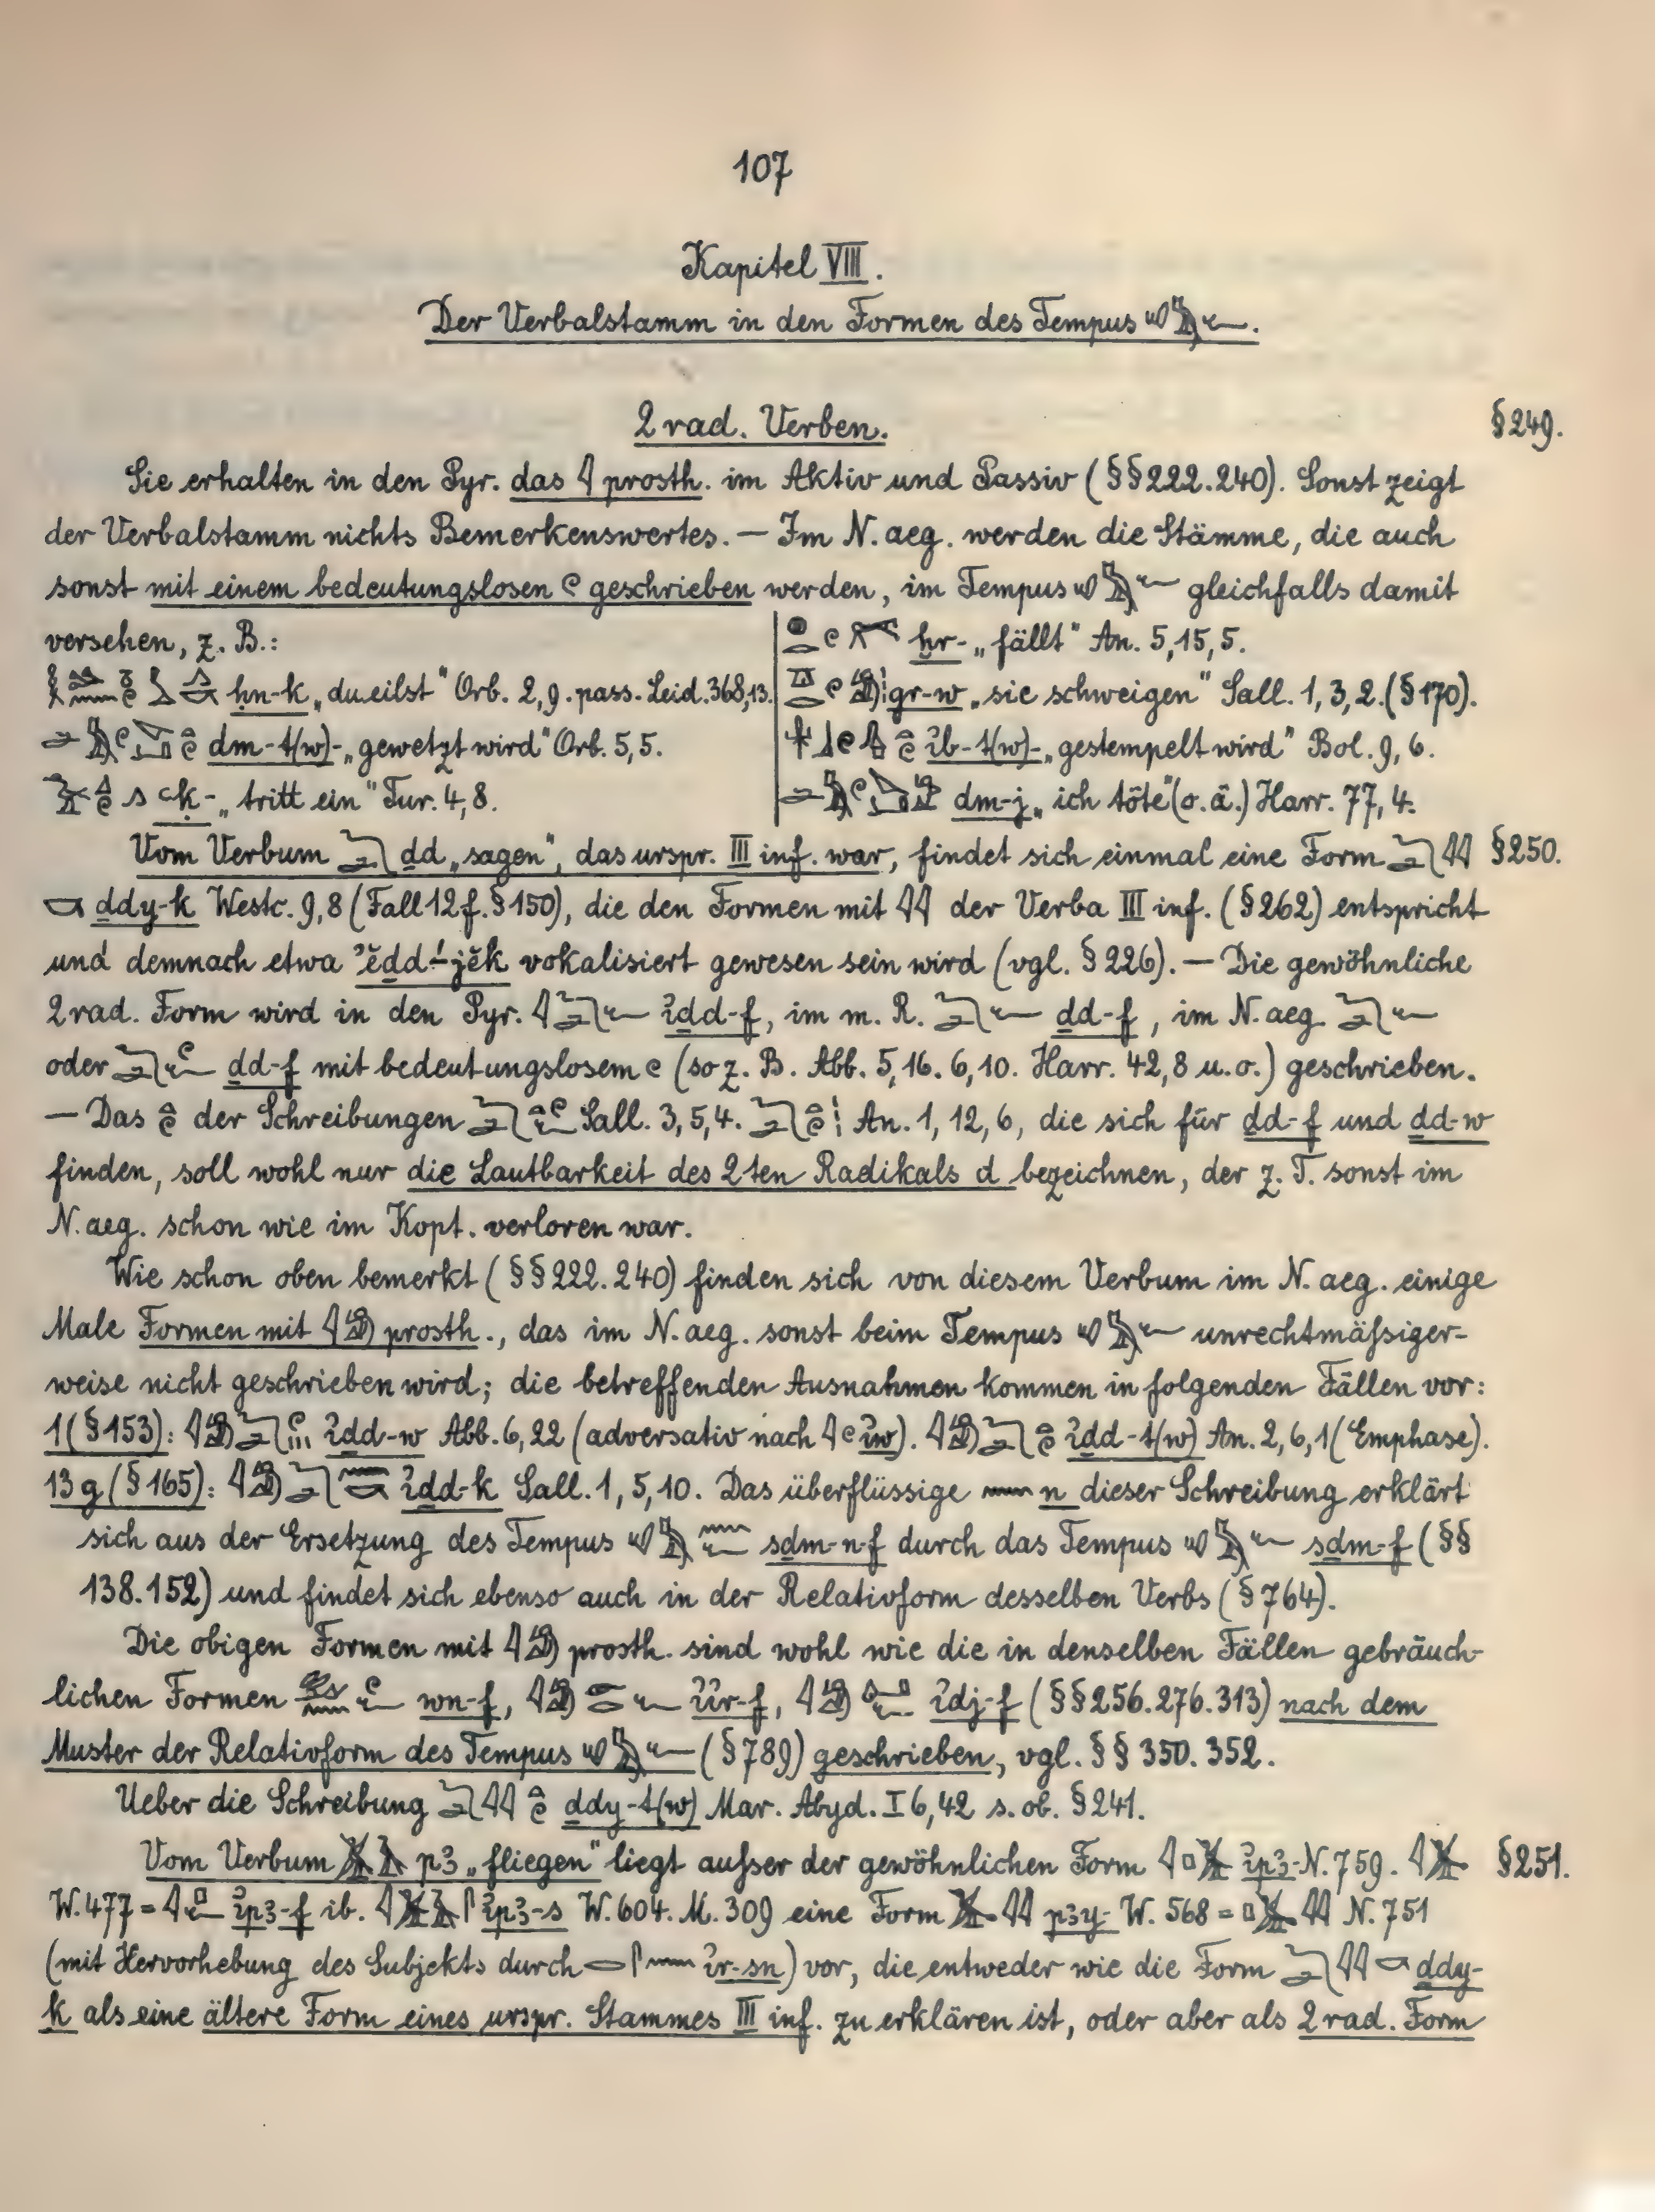 107
Kapitel VIII.
Der Verbalstamm in den Formen des Tempus
2 rad. Verben. § 249.
Sie erhalten in den Pyr. das 𓇋 prosth. im Aktiv und Passiv (§§ 222. 240). Sonst zeigt
der Verbalstamm nichts Bemerkenswertes. — Im N. aeg. werden die Stämme, die auch
sonst mit einem bedeutungslosen 𓏲 geschrieben werden, im Tempus gleichfalls damit
versehen, z. B.:
ḥn-k „du eilst" Orb. 2,9. pass. Leid. 368,13.
dm-t(w)- „gewetzt wird" Orb. 5,5.
ꜥḳ- „tritt ein" Tur. 4,8.
ḫr- „fällt" An. 5,15,5.
gr-w „sie schweigen" Sall. 1,3,2. (§ 170).
ȝb-t(w)- „gestempelt wird" Bol. 9,6.
dm-j „ich töte" (o. ä.) Harr. 77,4.
Vom Verbum ḏd „sagen", das urspr. III inf. war, findet sich einmal eine Form 𓆓𓂧𓇋𓇋 § 250.
𓎡 ḏdy-k Westc. 9,8 (Fall 12 f. § 150), die den Formen mit 𓇋𓇋 der Verba III inf. (§ 262) entspricht
und demnach etwa vokalisiert gewesen sein wird (vgl. § 226). — Die gewöhnliche
2 rad. Form wird in den Pyr. 𓇋𓆓𓂧𓆑 ı͗ḏd-f, im m. R. 𓆓𓂧𓆑 ḏd-f, im N. aeg. 𓆓𓂧𓆑
oder ḏd-f mit bedeutungslosem 𓏲 (so z. B. Abb. 5,16. 6,10. Harr. 42,8 u. o.) geschrieben.
— Das 𓏏𓏲 der Schreibungen Sall. 3,5,4. An. 1,12,6, die sich für ḏd-f und ḏd-w
finden, soll wohl nur die Lautbarkeit des 2ten Radikals d bezeichnen, der z. T. sonst im
N. aeg. schon wie im Kopt. verloren war.
Wie schon oben bemerkt (§§ 222. 240) finden sich von diesem Verbum im N. aeg. einige
Male Formen mit 𓇋𓀁 prosth., das im N. aeg. sonst beim Tempus unrechtmäßiger-
weise nicht geschrieben wird; die betreffenden Ausnahmen kommen in folgenden Fällen vor:
1 (§ 153): ı͗ḏd-w Abb. 6,22 (adversativ nach 𓇋𓏲 ı͗w). ı͗ḏd-t(w) An. 2,6,1 (Emphase).
13 g (§ 165): ı͗ḏd-k Sall. 1,5,10. Das überflüssige 𓈖 n dieser Schreibung erklärt
sich aus der Ersetzung des Tempus sḏm-n-f durch das Tempus sḏm-f (§§
138. 152) und findet sich ebenso auch in der Relativform desselben Verbs (§ 764).
Die obigen Formen mit 𓇋𓀁 prosth. sind wohl wie die in denselben Fällen gebräuch-
lichen Formen wn-f, ı͗ı͗r-f, ı͗dj-f (§§ 256. 276. 313) nach dem
Muster der Relativform des Tempus (§ 789) geschrieben, vgl. §§ 350. 352.
Ueber die Schreibung ḏdy-t(w) Mar. Abyd. I 6,42 s. ob. § 241.
Vom Verbum pȝ „fliegen" liegt außer der gewöhnlichen Form ı͗pȝ- N. 759. § 251.
W. 477 = ı͗pȝ-f ib. ı͗pȝ-s W. 604. M. 309 eine Form pȝy- W. 568 = N. 751
(mit Hervorhebung des Subjekts durch ı͗r-sn) vor, die entweder wie die Form 𓆓𓂧𓇋𓇋𓎡 ḏdy-
k als eine ältere Form eines urspr. Stammes III inf. zu erklären ist, oder aber als 2 rad. Form